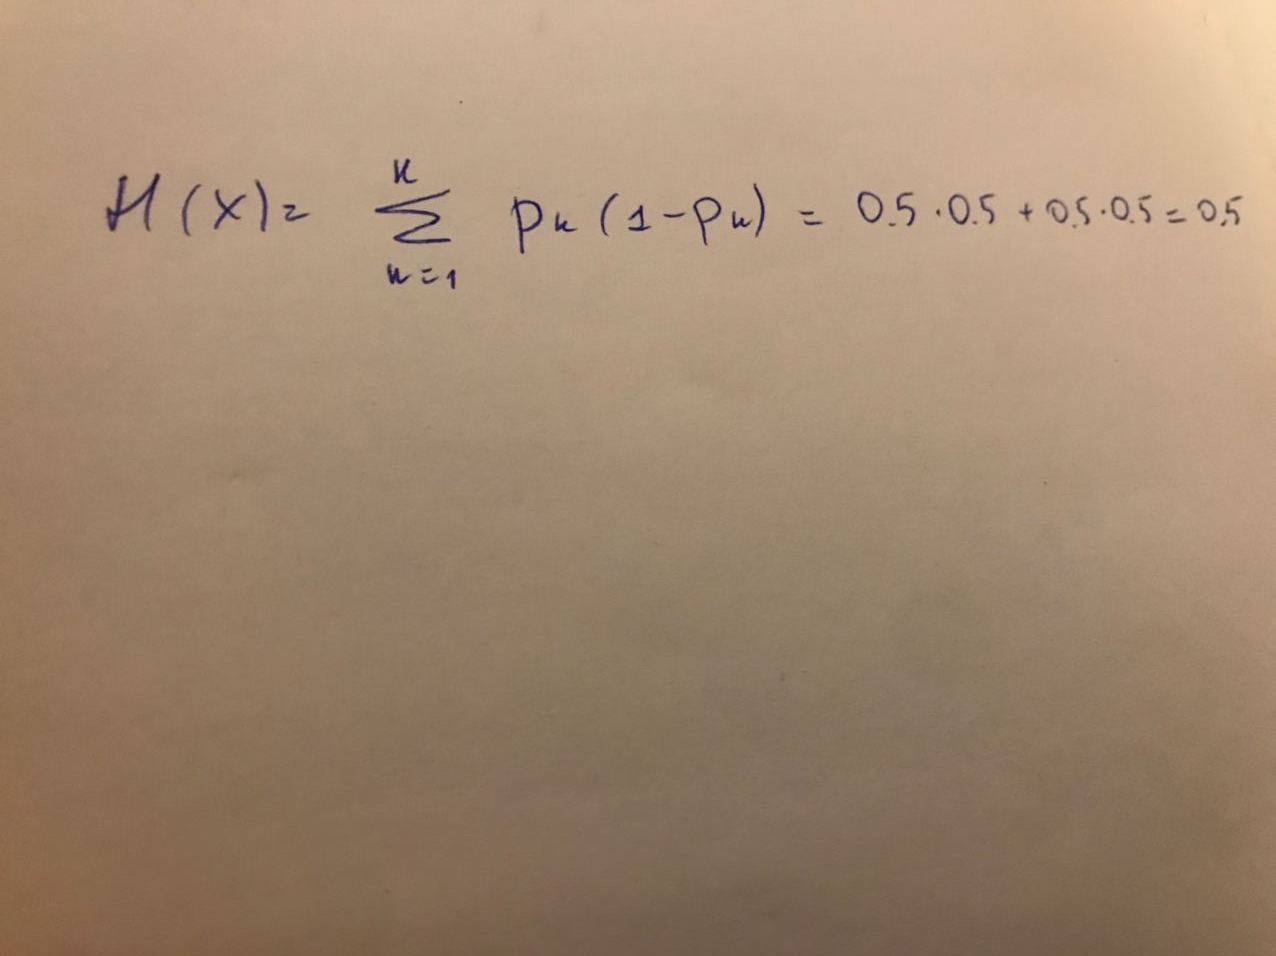 H(X) = \sum_{k=1}^{K} p_k (1 - p_k) = 0.5 · 0.5 + 0.5 · 0.5 = 0.5